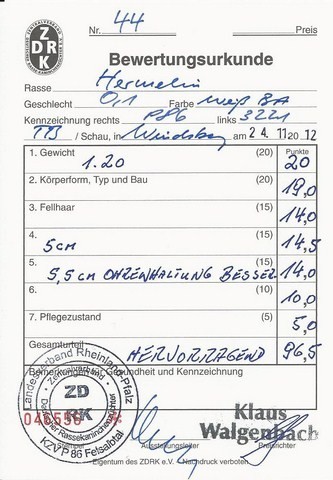 ZDRK
Nr. 44 Preis
Bewertungsurkunde
Rasse Hermelin
Geschlecht 0,1 Farbe weiß BA
Kennzeichnung rechts P86 links 3221
TTB / Schau, in am 24.11.2012
1. Gewicht (20) Punkte
1.20 20
2. Körperform, Typ und Bau (20) 19,0
3. Fellhaar (15) 14,0
4. (15) 14,5
5cm
5. (15) 14,0
5,5cm OHRENHALTUNG BESSER
6. (10) 10,0
7. Pflegezustand (5) 5,0
Gesamturteil HERVORRAGEND 96,5
Bemerkungen zu Gesundheit und Kennzeichnung
Landesverband Rheinland-Pfalz
Zentralverband
Deutscher Rassekaninchenzüchter
ZD
RK
KZV P 86 Felsalbtal
Klaus
Walgenbach
Ausstellungsleiter Preisrichter
Eigentum des ZDRK e.V. Nachdruck verboten.